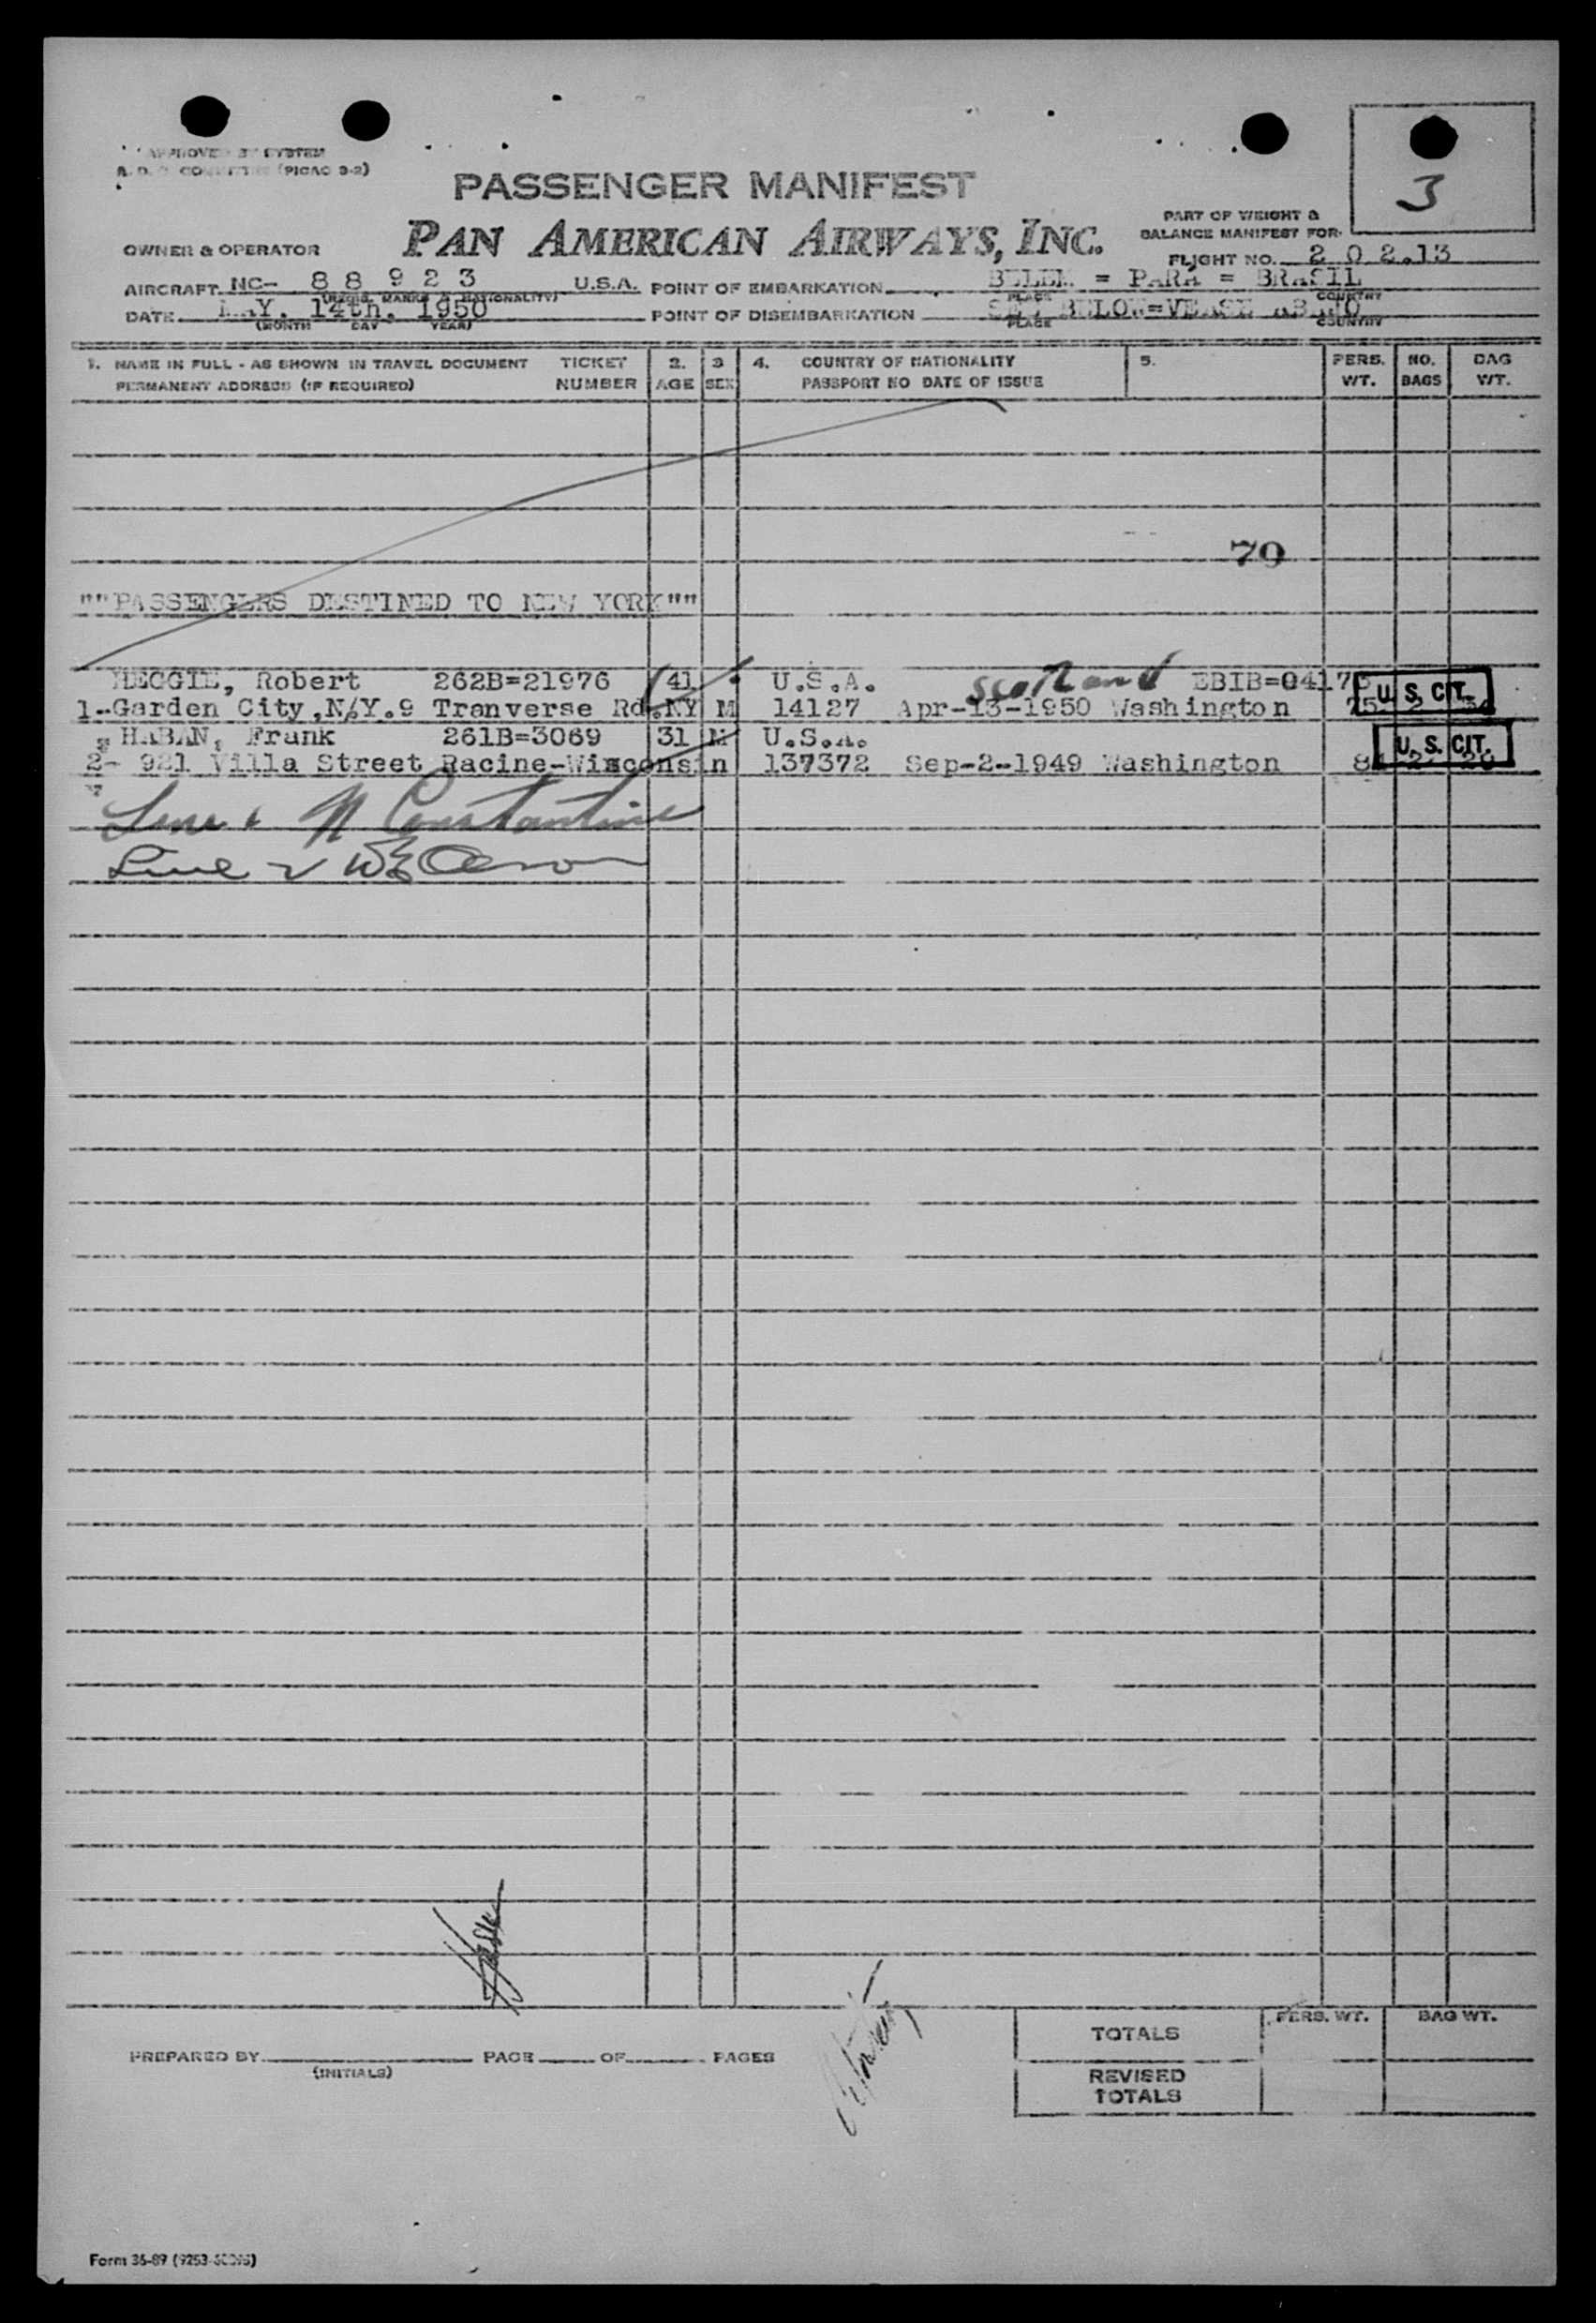 APPROVED BY SYSTEM
(PICAO 9-2)
3
PASSENGER MANIFEST
PAN AMERICAN AIRWAYS, INC.
PART OF WEIGHT &
BALANCE MANIFEST FOR
OWNER & OPERATOR
FLIGHT NO. 2 0 2.13
AIRCRAFT NC- 8 8 9 2 3 U.S.A. POINT OF EMBARKATION BELEM = PARÁ = BRASIL
(REGIS. MARKS & NATIONALITY) PLACE COUNTRY
DATE MAY. 14th, 1950 POINT OF DISEMBARKATION SEE BELOW=VEASE ABAJO
(MONTH DAY YEAR) PLACE COUNTRY
1. NAME IN FULL - AS SHOWN IN TRAVEL DOCUMENT TICKET 2. 3 4. COUNTRY OF NATIONALITY 5. PERS. NO. BAG
PERMANENT ADDRESS (IF REQUIRED) NUMBER AGE SEX PASSPORT NO DATE OF ISSUE WT. BAGS WT.
70
""PASSENGERS DESTINED TO NEW YORK""
HEGGIE, Robert 262B=21976 41 U.S.A. Scotland EBIB=04175
1--Garden City,N/Y.9 Tranverse Rd.NY M 14127 Apr-13-1950 Washington 75 2 U. S. CIT.
HABAN, Frank 261B=3069 31 M U.S.A.
2- 921 Villa Street Racine-Wisconsin 137372 Sep-2-1949 Washington 2 20 U. S. CIT.
Line 1 N Constantine
Line 2
PREPARED BY PAGE OF PAGES
(INITIALS)
TOTALS PERS. WT. BAG WT.
REVISED
TOTALS
Form 36-89